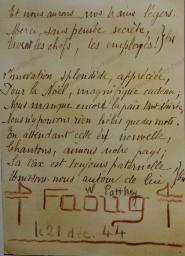 Et nous aurons nos bancs légers.
Merci, sans pensée secrète,
Vivent les chefs, les employés! } bis
Innovation splendide, appréciée,
Pour la Noël, magnifique cadeau;
Nous manque encore la paix
Nous n'épouvons rien hélas que des mots.
En attendant cette ère nouvelle,
Chantons, aimons notre pays;
La voix est toujours paternelle
Unissons-nous autour de lui } bis
W. Patthey
Faoug
le 21 déc. 44